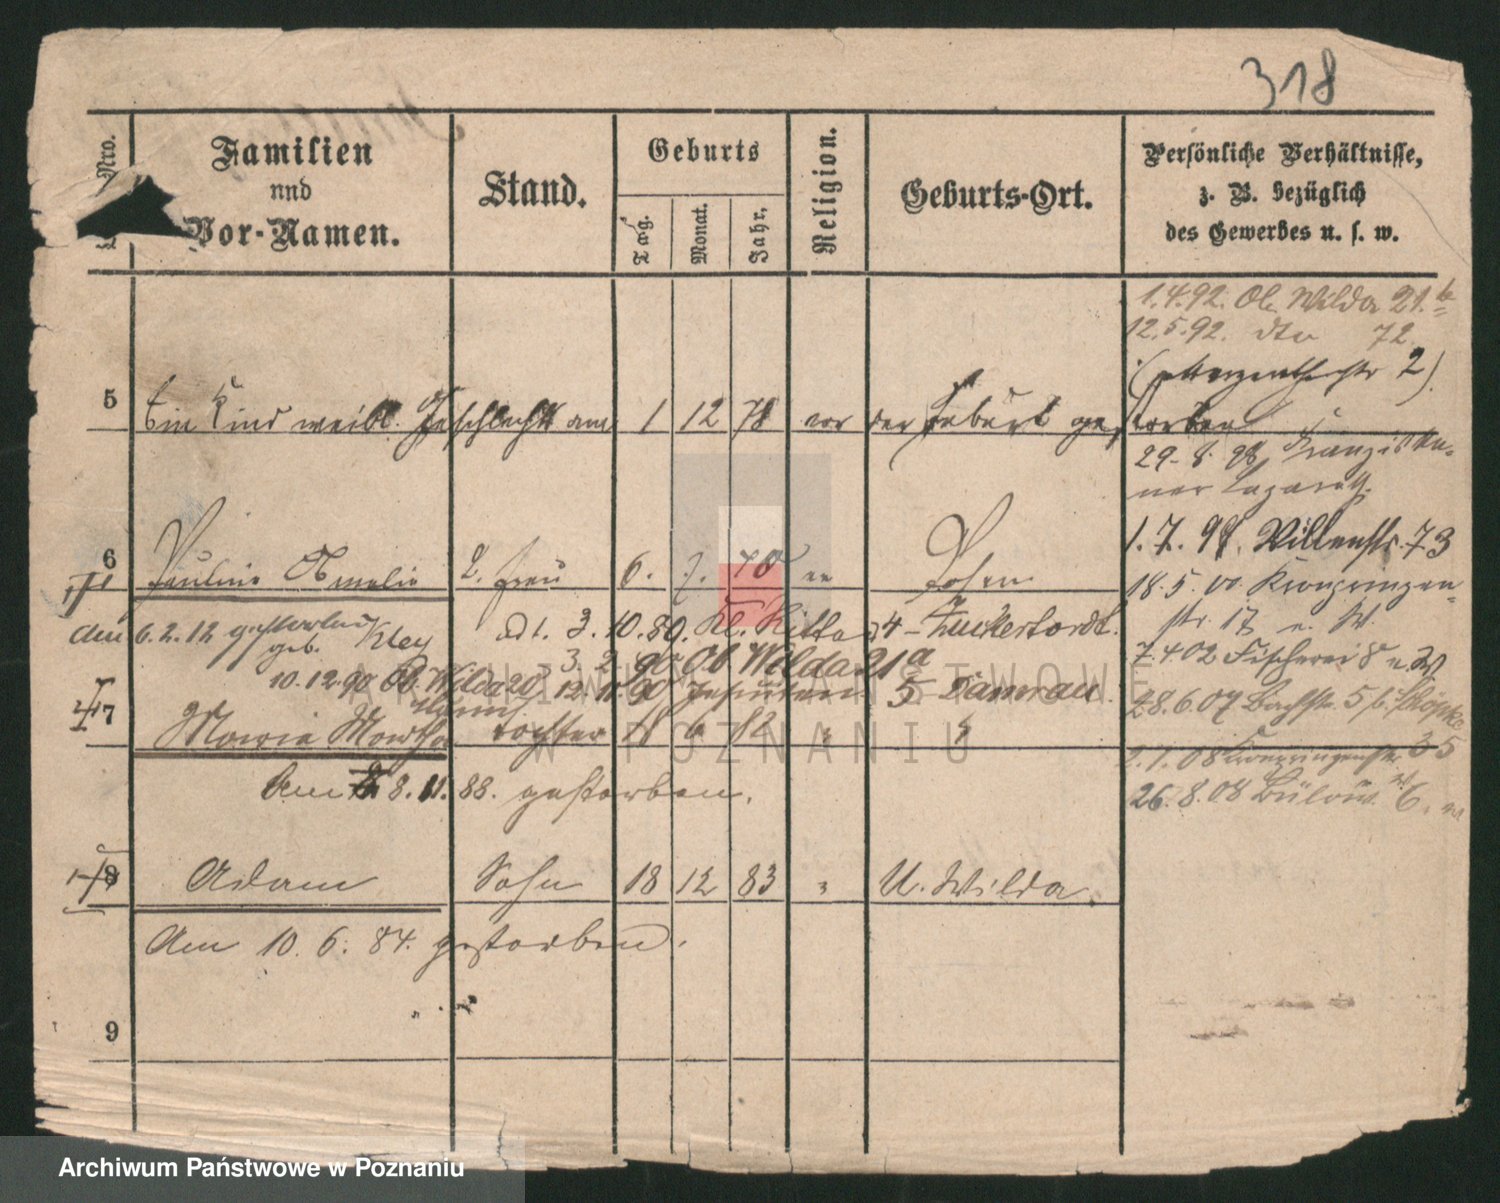 318
Nro.
Familien
und
Vor-Namen.
Stand.
Geburts
Tag.
Monat.
Jahr,
Religion.
Geburts-Ort.
Persönliche Verhältnisse,
z. B. bezüglich
des Gewerbes u. s. w.
1.4.92. Ob. Wilda 21.
12.5.92. dto 72.
2).
5 Ein Kind weibl. Geschlechts am 1 12 78 vor der Geburt gestorben
29. 8. 98 Franziska-
ner Lazareth.
1. 7. 98. 73
6 Pauline Amalie 2. Frau 6. 2. Posen
18.5. Kronprinzen-
str. 17 u. W.
den 6.2.12 gestorben
geb. Kley
3. 10. 89. Kl. Ritter 4 - Zuckertordt.
7.4.02 Fischerei 8 u. W
3. 2. 90 Ob. Wilda 21a
10.12.90 Ob. Wilda 20, 12.11.90 Jesuiten 5 Damrau.
28.6.07 Bachstr. 5
7 Maria Martha Tochter 18 6 82 "
2.1.08 Kronprinzenstr 35
Am 8. 11. 88. gestorben.
26. 8. 08 Bülow 6.
8 Adam Sohn 18 12 83 " U. Wilda.
Am 10. 6. 84. gestorben.
9
ARCHIWUM PAŃSTWOWE
W POZNANIU
Archiwum Państwowe w Poznaniu